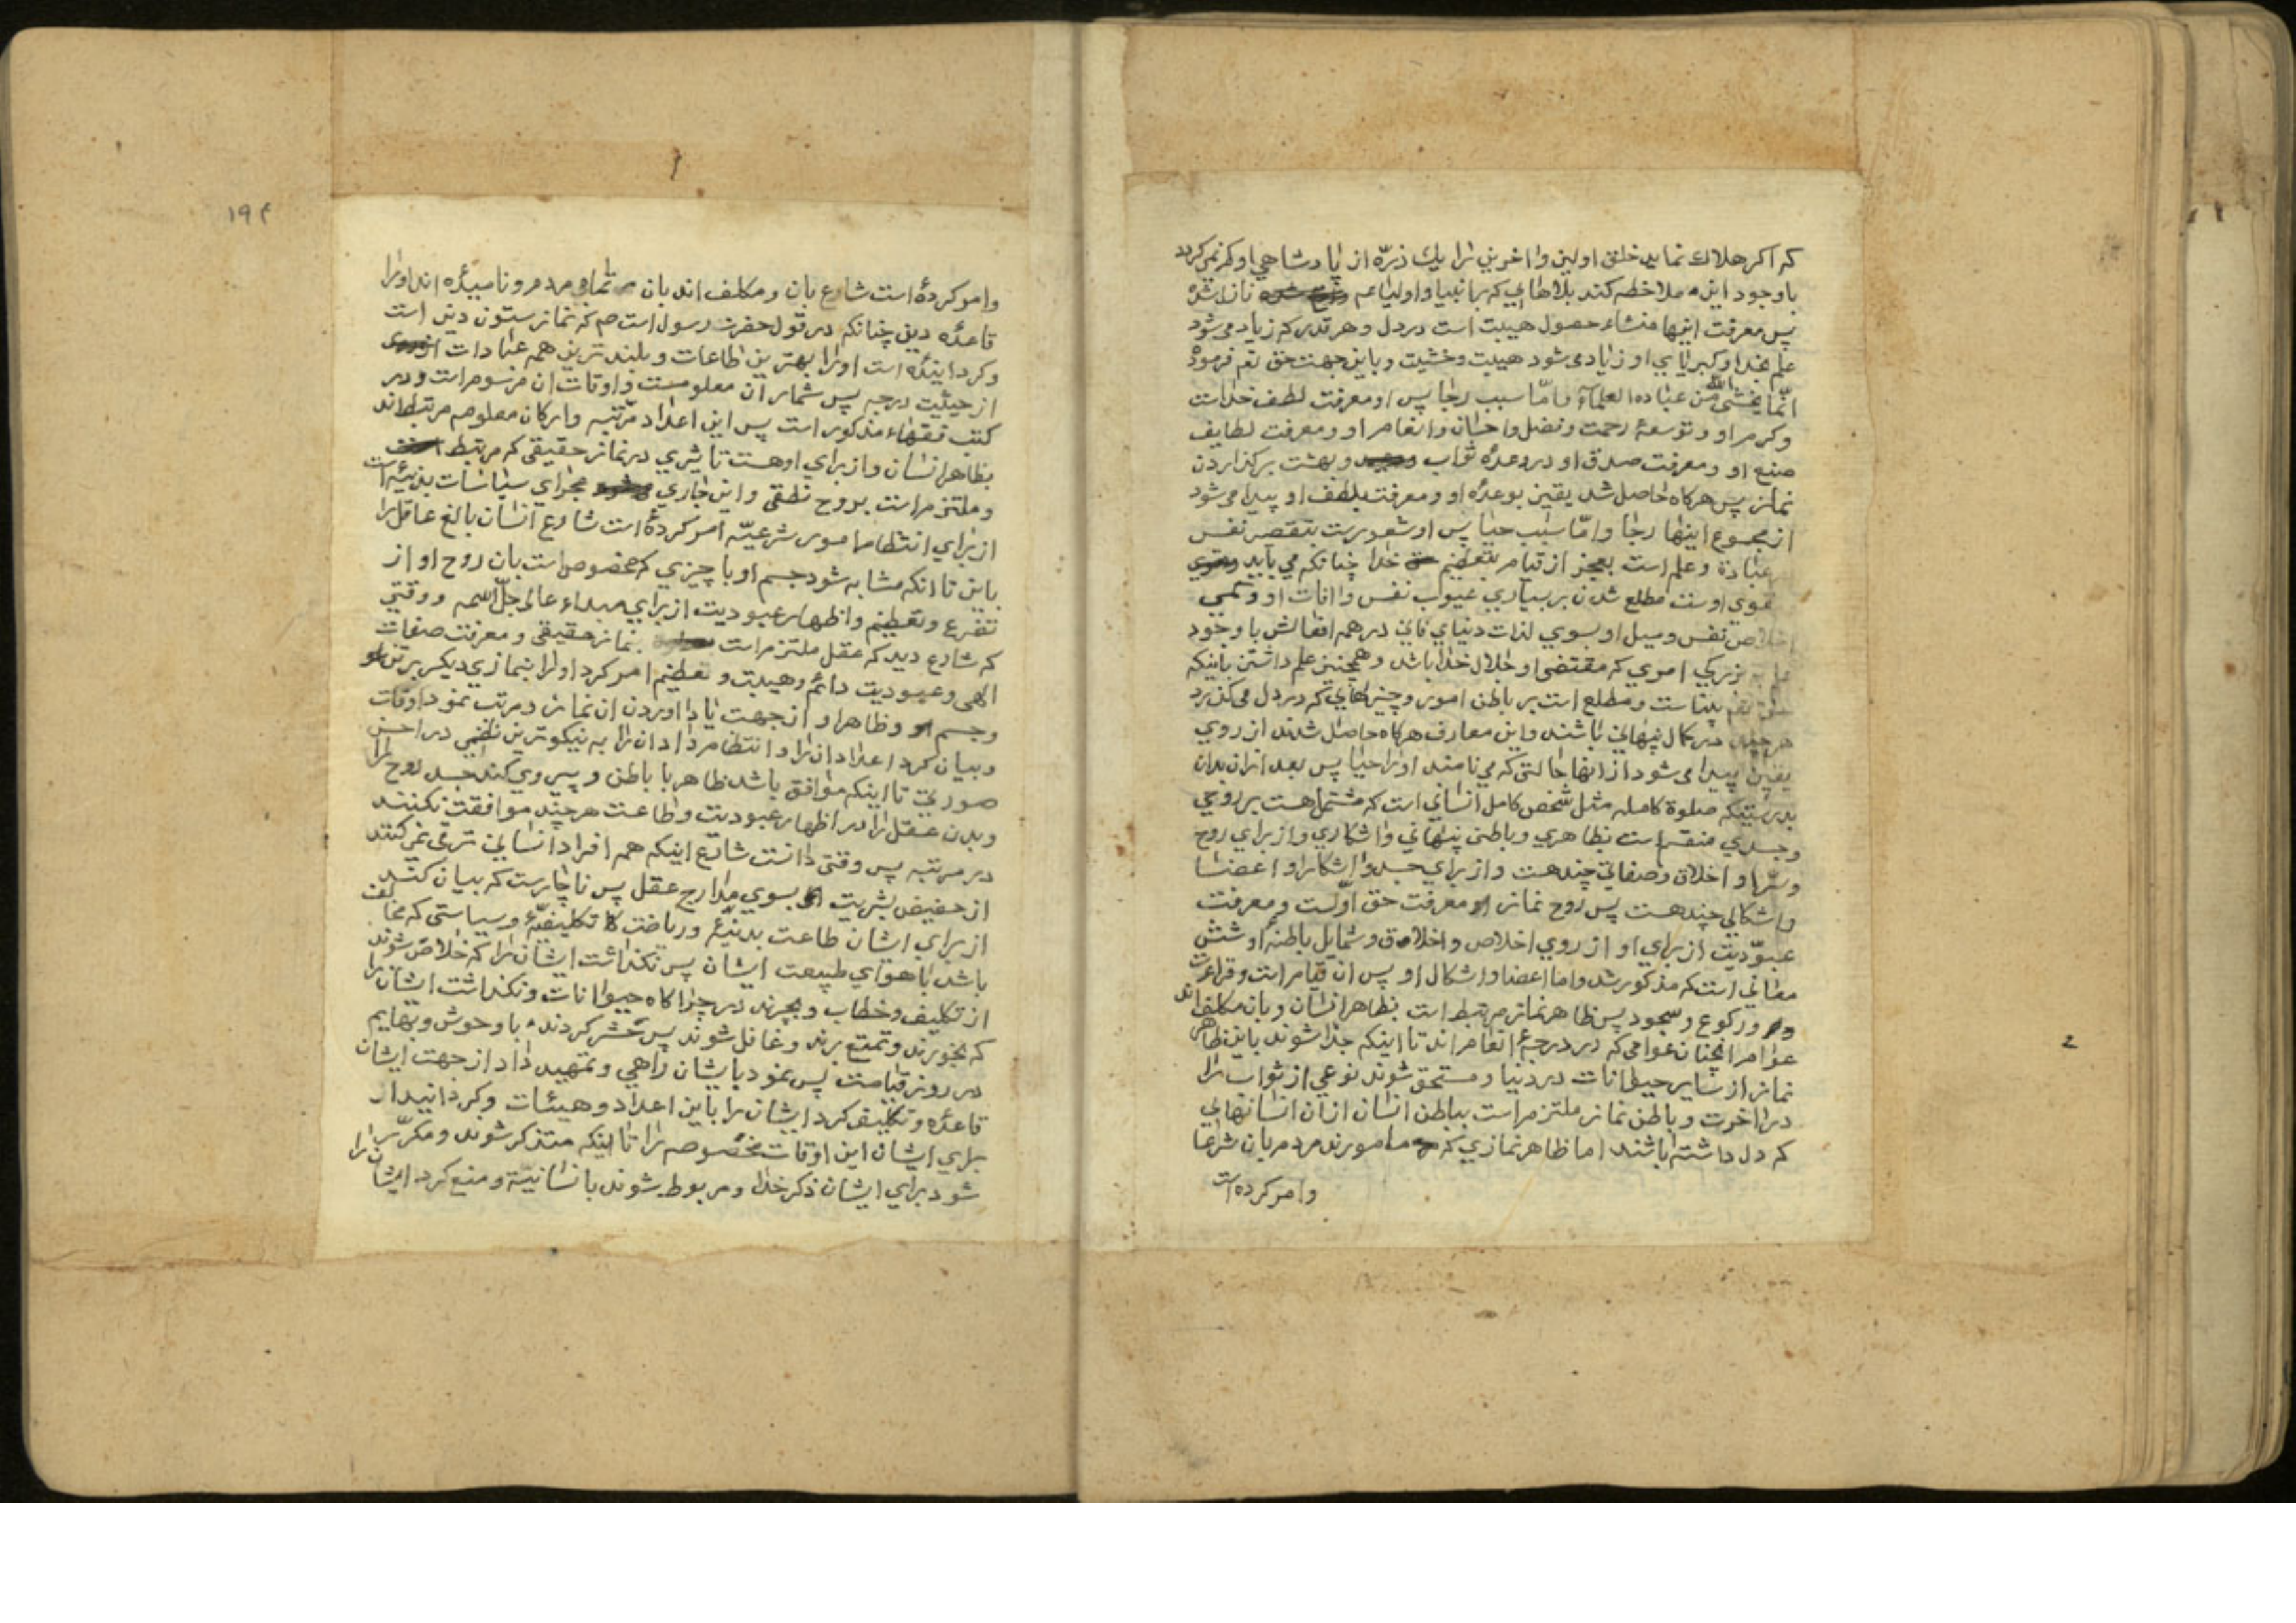 که اکر هلاك نمايد خلق اولين و اخرين را يك ذرّه از پادشاهي او کم نمي کردد
باوجود اين ملاحظه کند بلاهايي که بر انبيا و اوليا عم نازل شده
پس معرفت اينها منشاء حصول هيبت است در دل و هر قدر که زياد مي شود
علم بخدا و کبريايي او زياد مي شود هيبت و خشيت و باين جهت حق تعم فرموده
انّما يخشي الله من عباده العلماء و امّا سبب رجا پس او معرفت لطف خداست
و کرم او و توسعهٔ رحمت و فضل و احسان و انعام او و معرفت لطايف
صنع او و معرفت صدق او در وعدهٔ ثواب و بهشت بر کذاردن
نماز پس هرکاه حاصل شد يقين بوعدهٔ او و معرفت بلطف او پيدا مي شود
از مجموع اينها رجا و امّا سبب حيا پس او شعورست بتقصير نفس
عبادة و علم است بعجز از قيام بتعظيم خدا چنانکه مي بايد
قوي اوست مطلع شدن بر بسياري عيوب نفس و افات او و کمي
اخلاص نفس و ميل او بسوي لذات دنياي فاني در همه افعالش با وجود
علم به بزرکي اموري که مقتضي او جلال خدا باشد و همچنين علم داشتن باينکه
حق تعم بيناست و مطلع است بر باطن امور و چيزهايي که در دل مي کذرد
هرچند در کمال پنهاني باشند و اين معارف هرکاه حاصل شدند از روي
يقين پيدا مي شود از انها حالتي که مي نامند او را حيا پس بعد ازان بدان
بدرستيکه صلوة کامله مثل شخص کامل انساني است که مشتمل است بر روحي
و جسدي منقسم است بظاهري و باطني پنهاني و اشکاري و از براي روح
و سّر او اخلاق و صفاتي چند هست و از براي جسد و اشکار او اعضا
و اشکالي چند هست پس روح نماز معرفت حق اوّلست و معرفت
عبوّديت از براي او از روي اخلاص و اخلاق و شمايل باطنهٔ او شش
معاني است که مذکور شد و اما اعضا و اشکال او پس ان قيام است و قراءت
و رکوع و سجود پس ظاهر نماز مرتبط است بظاهر انسان و بان مکلف اند
عوام انچنان عوامي که در درجهٔ انعام اند تا اينکه جدا شوند باين ظاهر
نماز از ساير حيوانات در دنيا و مستحق شوند نوعي از ثواب را
در اخرت و باطن نماز ملتزم است بباطن انسان ازان انسانهايي
که دل داشته باشند اما ظاهر نمازي که مامورند مردم بان شرعا
و امر کرده است
۱۹۴
و امر کردهٔ است شارع بان و مکلف اند بان تمامي مردم و ناميده اند او را
قاعدهٔ دين چنانکه در قول حضرت رسول است صم که نماز ستون دين است
و کردانيدهٔ است او را بهترين طاعات و بلند ترين همه عبادات
از حيثيت درجه پس شمار ان معلومست و اوقات ان مرسوم است و در
کتب فقهاء مذکور است پس اين اعداد مرّتبه و ارکان معلومه مرتبط اند
بظاهر انسان و از براي او هست تاثيري در نماز حقيقي که مرتبط
و ملتزم است بروح نطقي و اين جاري مجراي سياسات بدنيهٔ است
از براي انتظام امور شرعيّه امر کردهٔ است شارع انسان بالغ عاقل را
باين تا انکه مشابه شود جسم او با چيزي که مخصوص است بان روح او از
تضرع و تعظيم و اظهار عبوديت از براي مبداء عالم جلّ اسمه و وقتي
که شارع ديد که عقل ملتزم است نماز حقيقي و معرفت صفات
الهي و عبوديت دائم و هيبت و تعظيم امر کرد او را بنمازي ديکر بر تن او
و جسم و ظاهر او از جهت ياد اوردن ان نماز و مرتب نمود اوقات
و بيان کرد اعداد ان را و انتظام داد ان را به نيکوترين نظمي در احسن
صورتي تا اينکه موافق باشد ظاهر با باطن و پيروي کند جسد روح را
و بدن عقل را در اظهار عبوديت و طاعت هرچند موافقت نکنند
در مرتبه پس وقتي دانست شارع اينکه همه افراد انساني ترقي نمي کنند
از حضيض بشريت بسوي مدارج عقل پس ناچارست که بيان کند
از براي ايشان طاعت بدنيّهٔ و رياضت تکليفيّهٔ و سياستي که مخالف
باشد با هواي طبيعت ايشان پس نکذاشت ايشان را که خلاص شوند
از تکليف و خطاب و بچرند در چراکاه حيوانات و نکذاشت ايشان را
که بخورند و تمتع برند و غافل شوند پس حشر کردند با وحوش و بهايم
در روز قيامت پس نمود بايشان راهي و تمهيد داد از جهت ايشان
قاعدهٔ و تکليف کرد ايشان را باين اعداد و هيئات و کردانيد از
براي ايشان اين اوقات مخصوصه را تا اينکه متذکر شوند و مکرّر
شود براي ايشان ذکر خدا و مربوط شوند بانسانيّة و منع کرد ايشان را